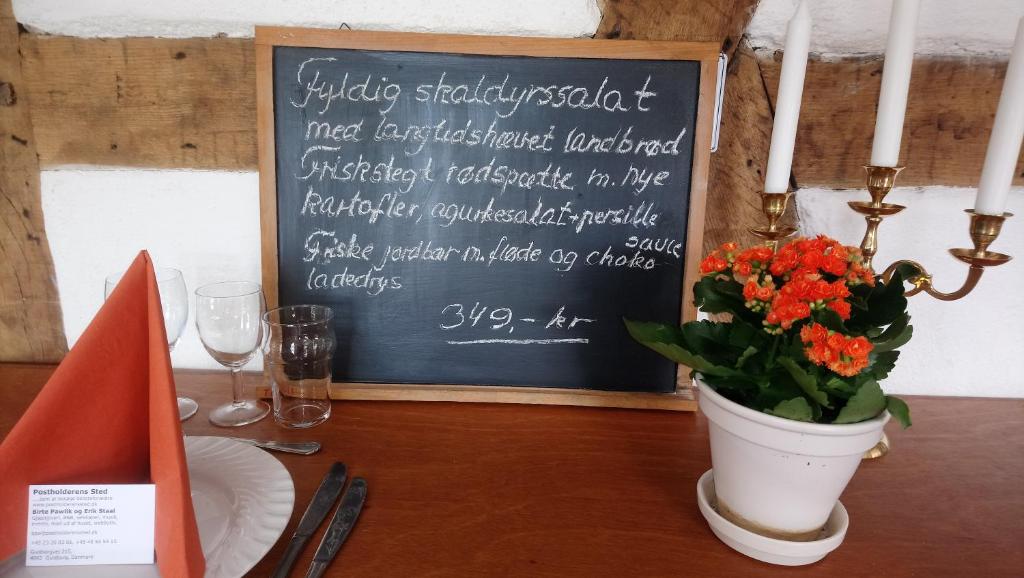 Fyldig skaldyrssalat
med langtidshævet landbrød
Friskstegt rødspætte m. nye
kartofler, agurkesalat + persille
sauce
Friske jordbær m. fløde og choko-
ladedrys
349,- kr
Postholderens Sted
Birte Pawlik og Erik Staal